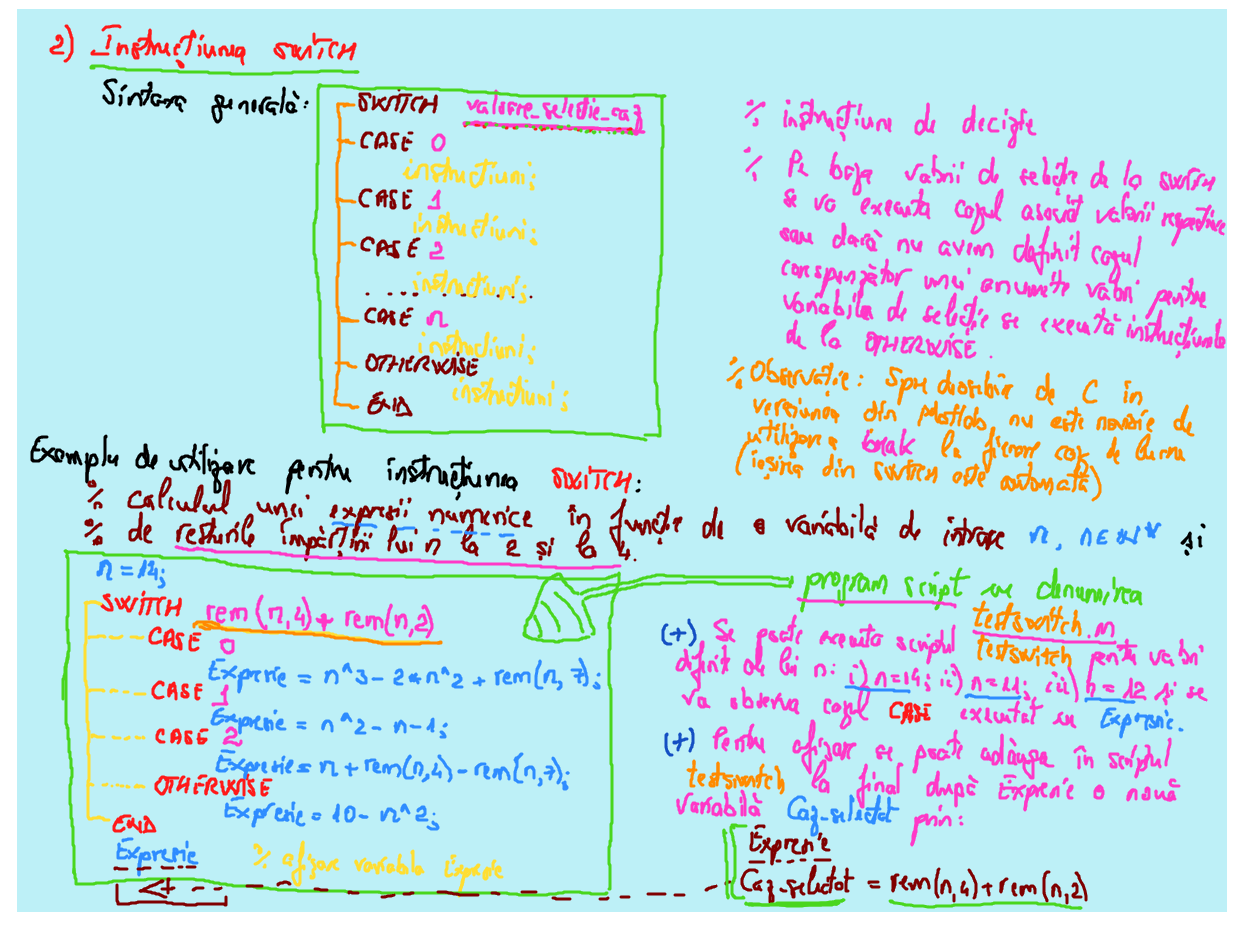 2) Instrucțiunea SWITCH
Sintaxa generală:
SWITCH valoare_selectie_caz
CASE 0
instrucțiuni;
CASE 1
instrucțiuni;
CASE 2
instrucțiuni;
. . . . . . . . . . .
CASE n
instrucțiuni;
OTHERWISE
instrucțiuni;
END
% instrucțiune de decizie
% Pe baza valorii de selecție de la SWITCH
se va executa cazul asociat valorii respective
sau dacă nu avem definit cazul
corespunzător unei anumite valori pentru
variabila de selecție se execută instrucțiunile
de la OTHERWISE.
% Observație: Spre deosebire de C în
versiunea din Matlab nu este nevoie de
utilizarea break la fiecare caz de lucru
(ieșirea din SWITCH este automată)
Exemplu de utilizare pentru instrucțiunea SWITCH:
% calculul unei expresii numerice în funcție de o variabilă de intrare n, n∈N* și
% de resturile împărțirii lui n la 2 și la 4.
n = 14;
SWITCH rem(n,4) + rem(n,2)
CASE 0
Expresie = n^3 - 2*n^2 + rem(n,7);
CASE 1
Expresie = n^2 - n - 1;
CASE 2
Expresie = n + rem(n,4) - rem(n,7);
OTHERWISE
Expresie = 10 - n^2;
END
Expresie % afișare variabila Expresie
program script cu denumirea
testswitch.m
(+) Se poate executa scriptul testswitch pentru valori
diferite ale lui n: i) n=14; ii) n=11; iii) n=12 și se
va observa cazul CASE executat cu Expresie.
(+) Pentru afișare se poate adăuga în scriptul
testswitch la final după Expresie o nouă
variabilă Caz_selectat prin:
Expresie
Caz_selectat = rem(n,4) + rem(n,2)